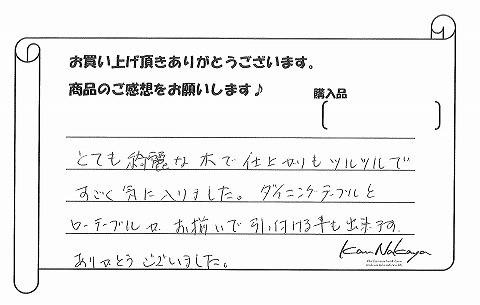 お買い上げ頂きありがとうございます。
商品のご感想をお願いします♪
購入品
とても綺麗な木で仕上がりもツルツルで
すごく気に入りました。ダイニングテーブルと
ローテーブルがお揃いで引っ付ける事も出来ます。
ありがとうございました。
Kan Nakaya